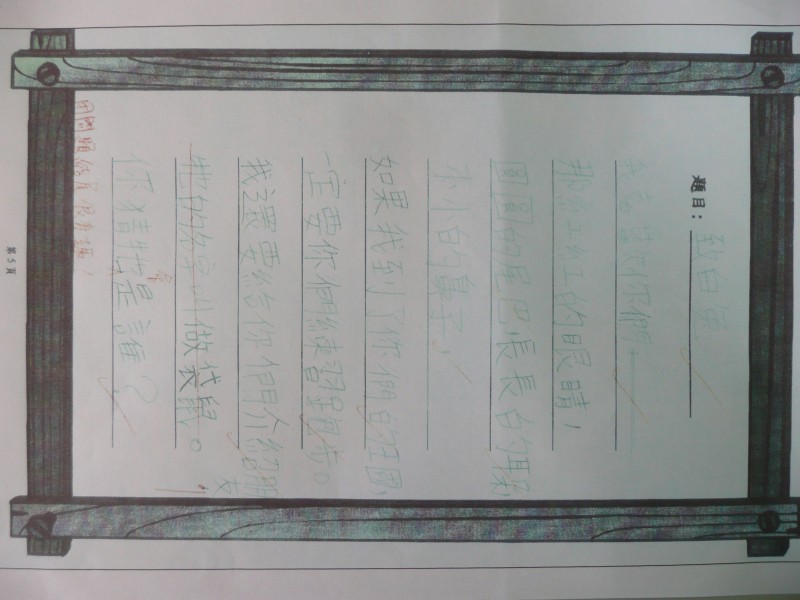 題目：致白兔
我喜歡你們
那紅紅的眼睛，
圓圓的尾巴長長的耳朵
小小的鼻子，
如果我到了你們的祖國，
一定要你們練習
我還要給你們介紹朋友
牠的名字叫做袋鼠。
你猜牠是誰？
第 5 頁